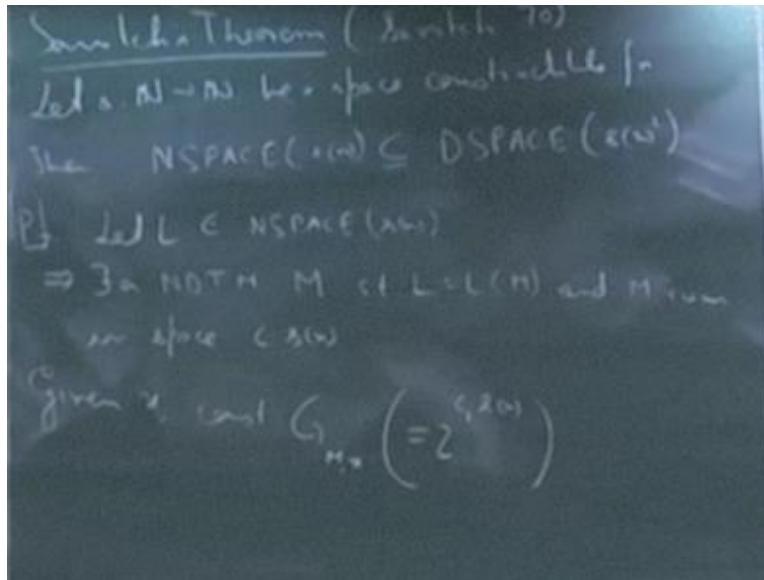 Savitch's Theorem (Savitch 70)
Let s: ℕ→ℕ be a space constructible fn
Then NSPACE(s(n)) ⊆ DSPACE(s(n)²)
Pf Let L ∈ NSPACE(s(n))
⇒ ∃ a NDTM M st L=L(M) and M runs
in space c s(n)
Given x, const G_{M,x} (=2^{c₁s(n)})